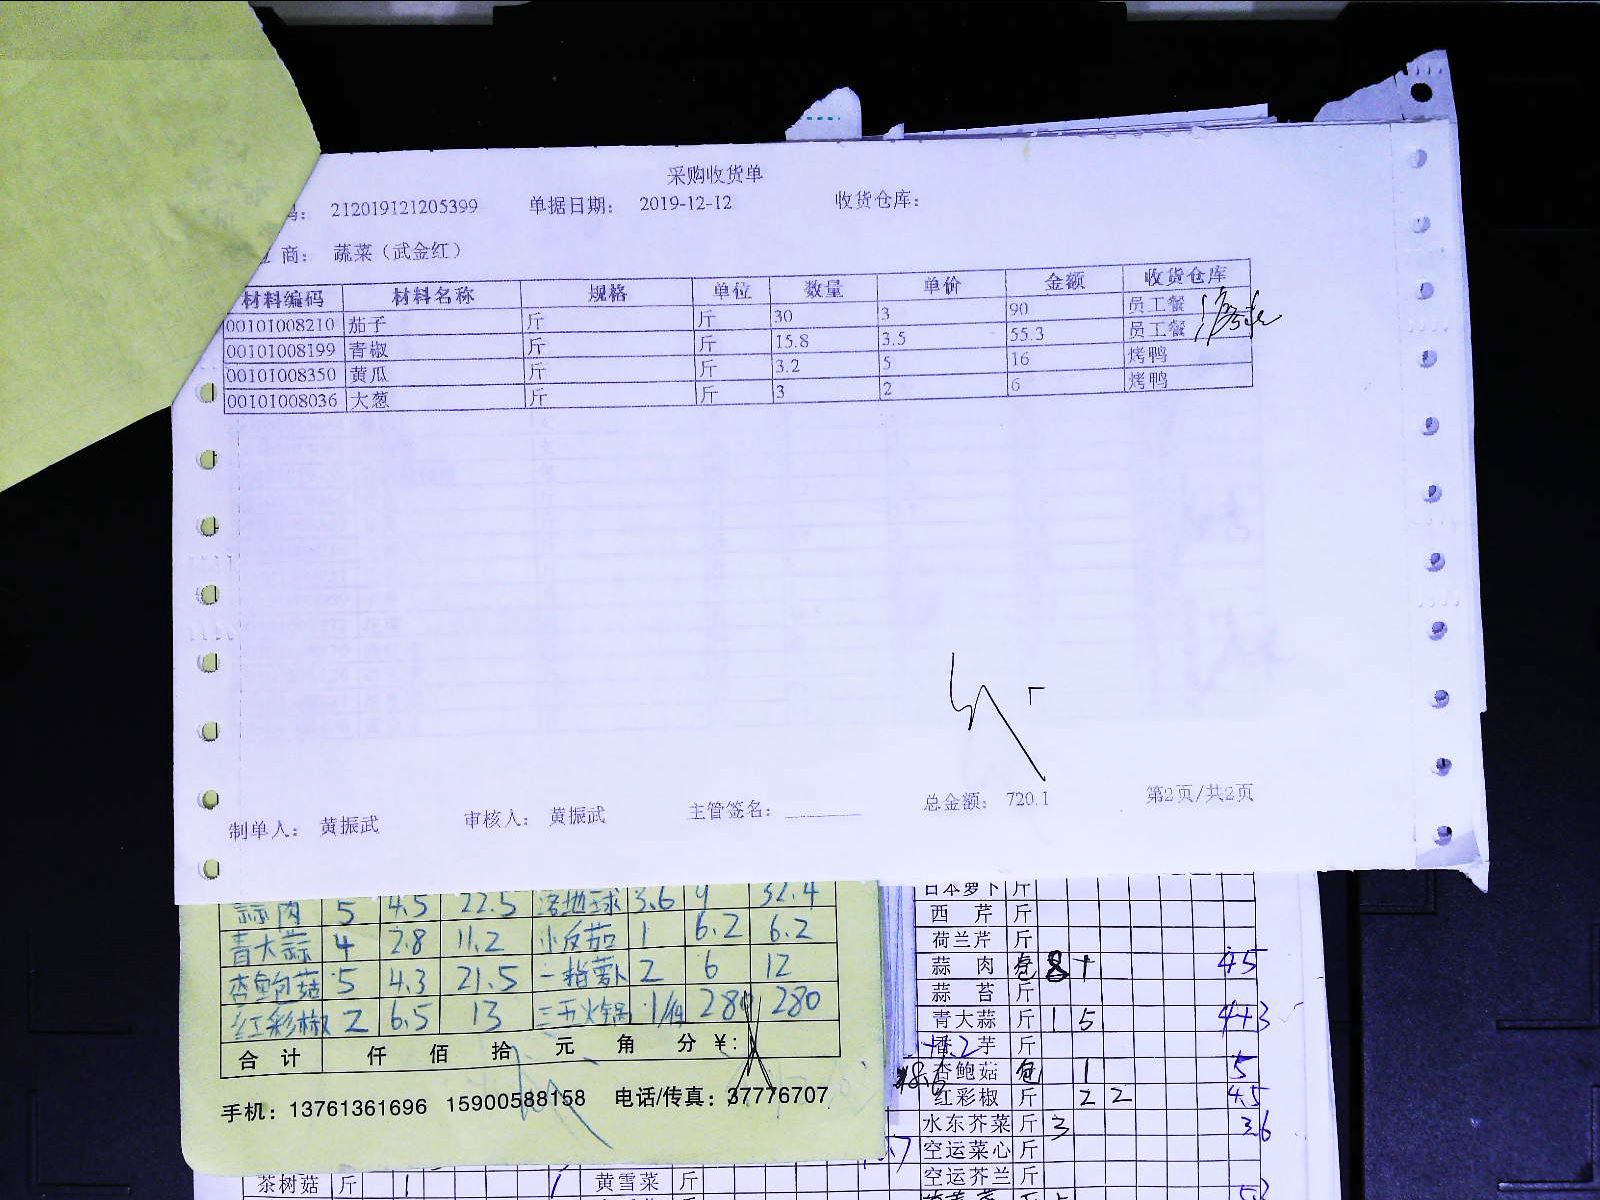 采购收货单
码： 212019121205399 单据日期： 2019-12-12 收货仓库：
商： 蔬菜（武金红）
材料编码 材料名称 规格 单位 数量 单价 金额 收货仓库
00101008210 茄子 斤 斤 30 3 90 员工餐
00101008199 青椒 斤 斤 15.8 3.5 55.3 员工餐
00101008350 黄瓜 斤 斤 3.2 5 16 烤鸭
00101008036 大葱 斤 斤 3 2 6 烤鸭
制单人： 黄振武 审核人： 黄振武 主管签名： 总金额： 720.1 第2页/共2页
蒜肉 5 4.5 22.5 落地球 3.6 9 32.4
青大蒜 4 2.8 11.2 小反茄 1 6.2 6.2
杏鲍菇 5 4.3 21.5 一指萝卜 2 6 12
红彩椒 2 6.5 13 三五火锅 280 280
合计 仟 佰 拾 元 角 分 ¥：
手机：13761361696 15900588158 电话/传真：37776707
日本萝卜 斤
西芹 斤
荷兰芹 斤
蒜肉 8 45
蒜苔 斤
青大蒜 斤 1 5
芋 斤
杏鲍菇 包 1 5
红彩椒 斤 2 2 45
水东芥菜 斤 3 36
空运菜心 斤
空运芥兰 斤
茶树菇 斤 1 黄雪菜 斤